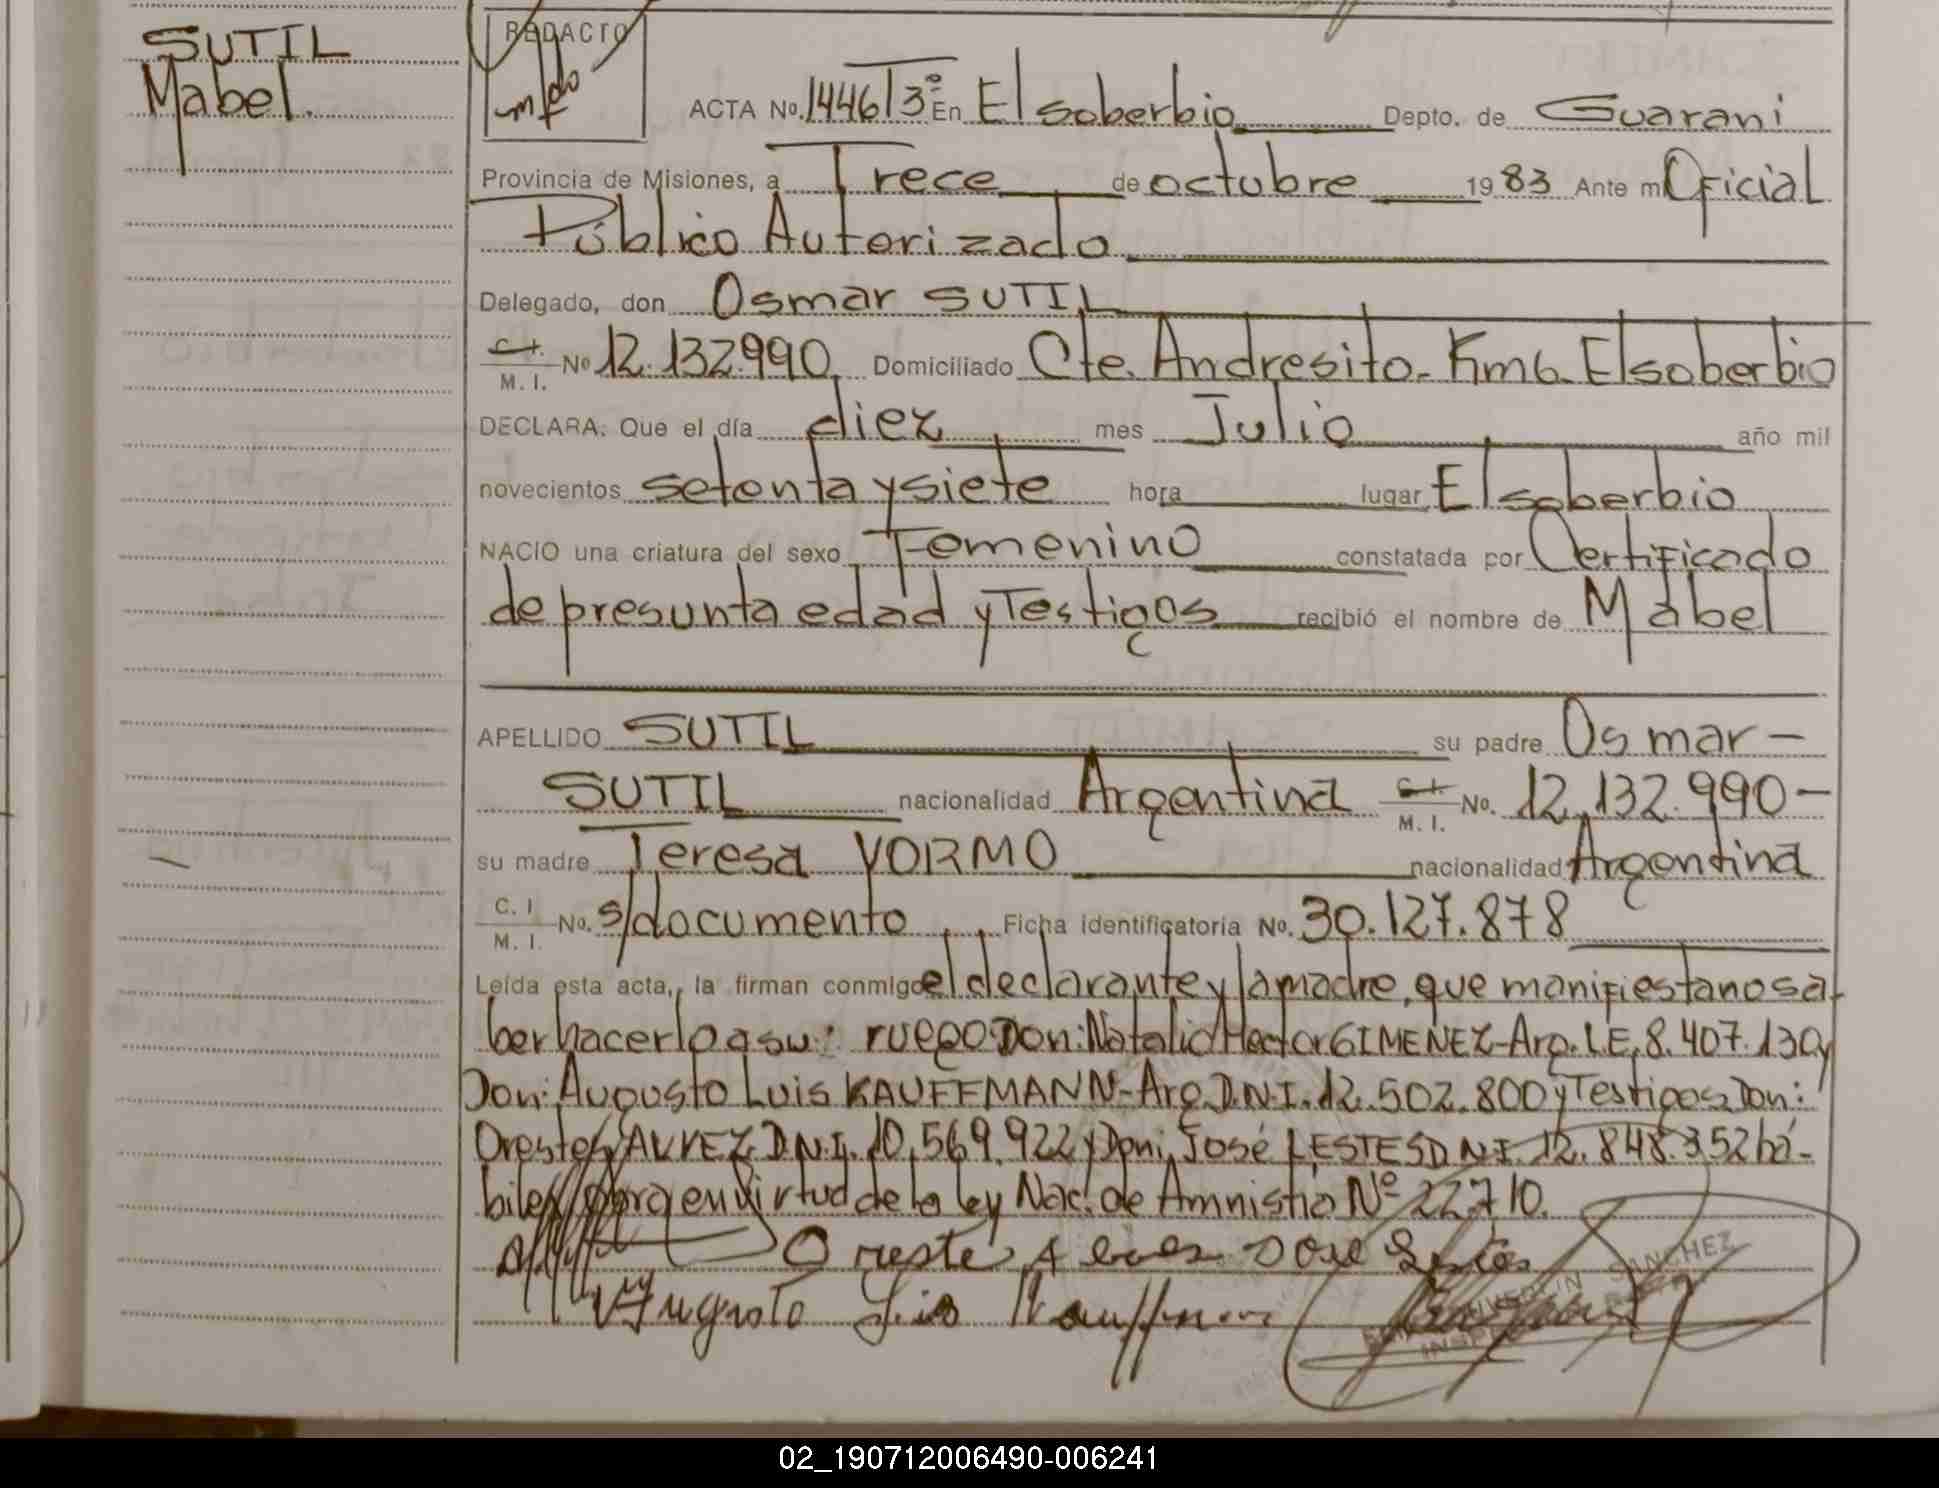 SUTIL
Mabel.
REDACTO
ACTA No. 1446 T 3º En El soberbio Depto. de Guarani
Provincia de Misiones, a Trece de octubre 1983 Ante mi Oficial
Público Autorizado
Delegado, don Osmar SUTIL
C.I. M. I. No 12.132.990 Domiciliado Cte. Andresito - Km 6 - El soberbio
DECLARA: Que el día diez mes Julio año mil
novecientos setenta y siete hora lugar El soberbio
NACIO una criatura del sexo Femenino constatada por Certificado
de presunta edad y Testigos recibió el nombre de Mabel
APELLIDO SUTIL su padre Osmar -
SUTIL nacionalidad Argentina C.I. M. I. No. 12.132.990 -
su madre Teresa YORMO nacionalidad Argentina
C. I M. I. No. s/documento Ficha identificatoria No. 30.127.878
Leída esta acta, la firman conmigo el declarante y la madre, que manifiestan o sa-
ber hacerlo a su: ruego Don: Natalio Hector GIMENEZ - Arg. L.E. 8.407.130 y
Don: Augusto Luis KAUFFMANN - Arg D.N.I. 12.502.800 y Testigos Don:
Orestes ALVEZ D.N.I. 10.569.922 y Don: José LESTES D.N.I. 12.848.352 há-
biles obra en virtud de la ley Nac. de Amnistia Nº 22.710.
Oreste Alves Jose Lestes
Augusto Luis Kauffmann
SANCHEZ
02_190712006490-006241